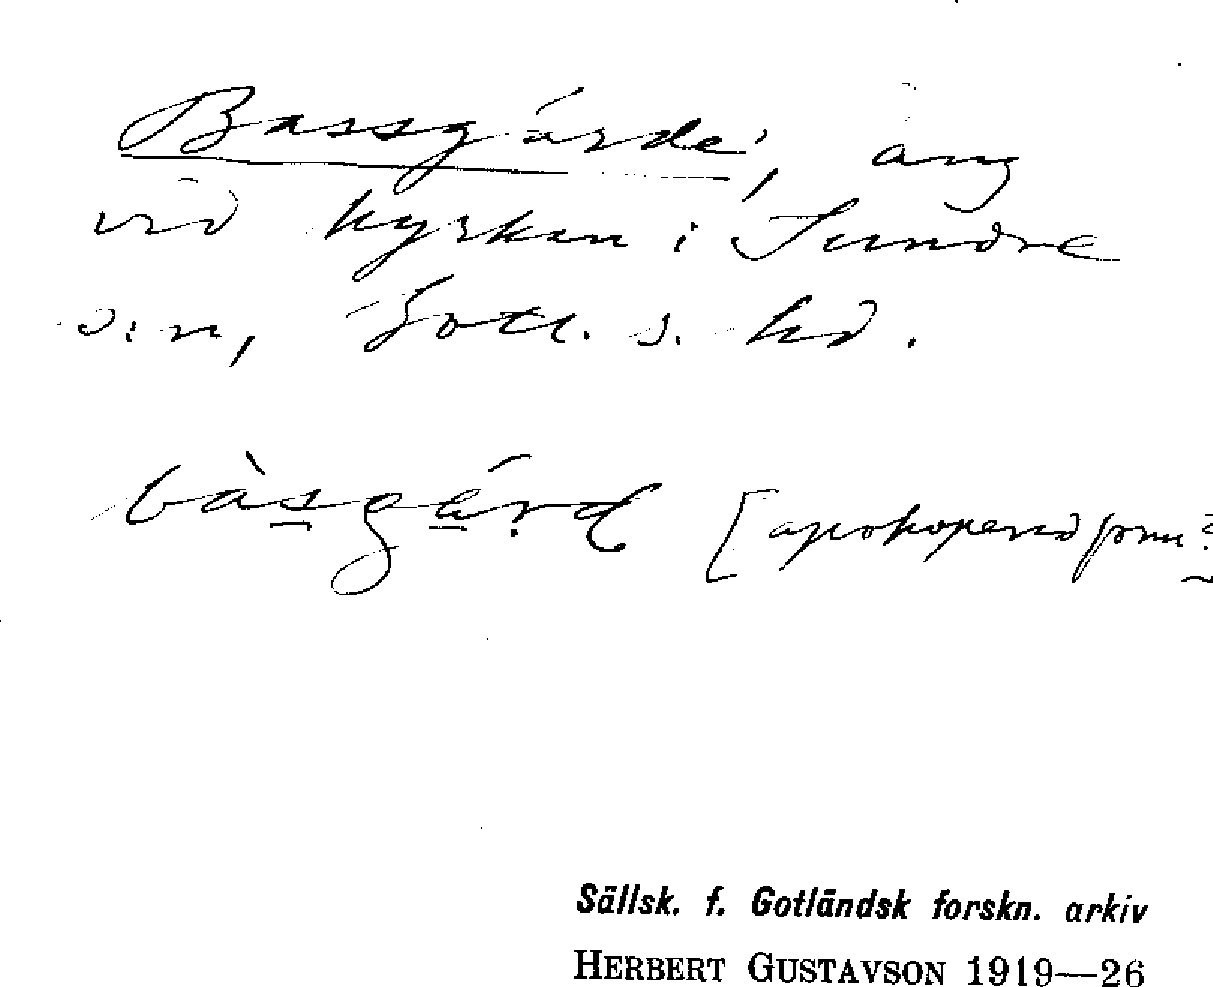 Bassgårde, äng
vid kyrkan i Sundre
s:n, Gotl. s. hd.
bàsgárd [apokoperad form?
Sällsk. f. Gotländsk forskn. arkiv
HERBERT GUSTAVSON 1919—26